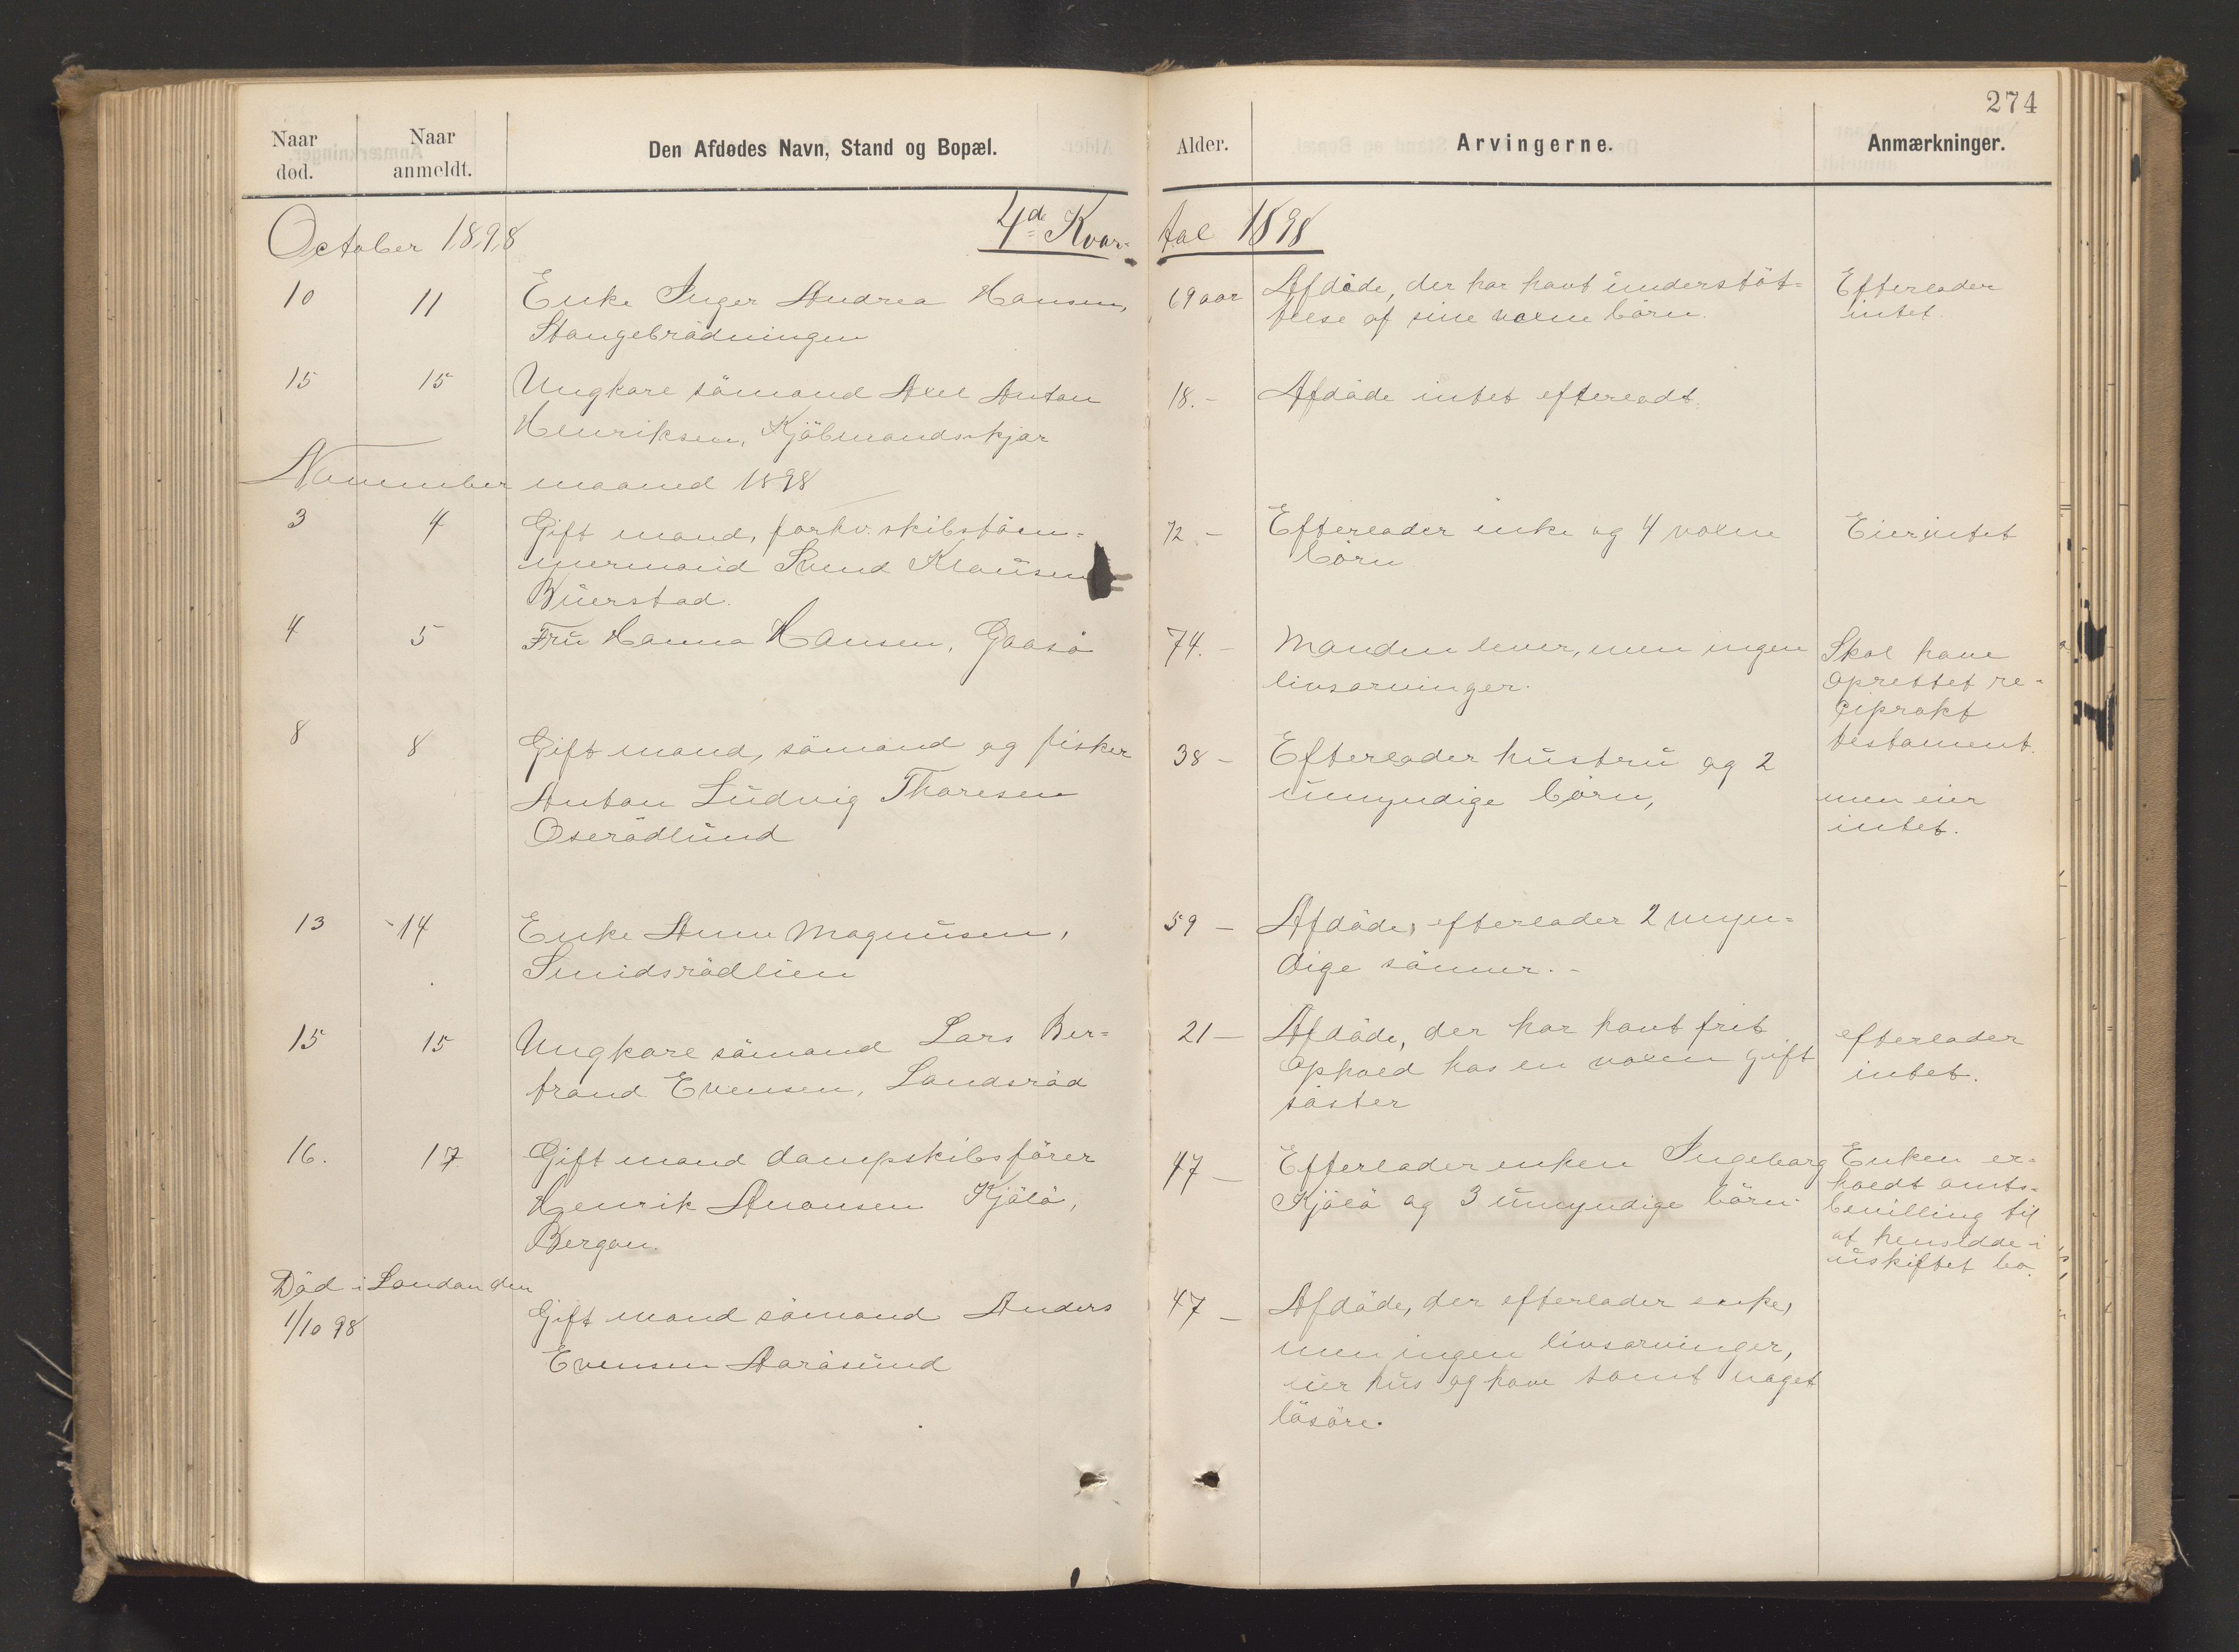 274
Naar død.
Naar anmeldt.
Den Afdødes Navn, Stand og Bopæl.
Alder.
Arvingerne.
Anmærkninger.
October 1898
4de Kvar-
tal 1898
10
11
Enke Inger Andrea Hansen,
Stangebrådningen
69 aar
Afdöde, der har havt understöt-
telse af sine voxne börn.
Efterlader
intet.
15
15
Ungkare sömand Axel Anton
Henriksen, Kjöbmandsskjær
18. -
Afdöde intet efterladt
November maaned 1898
3
4
Gift mand, forhv. skibstöm-
mermand Svend Klausen
Buerstad.
72. -
Efterlader enke og 4 voxne
börn
Eier intet
4
5
Fru Hanna Hansen, Gaasö
74. -
Manden lever, men ingen
livsarvinger.
Skal have
oprettet re-
ciprokt
testament.
8
8
Gift mand, sömand og fisker
Anton Ludvig Thoresen
Oserödlund
38 -
Efterlader hustru og 2
umyndige börn,
men eier
intet.
13
14
Enke Anne Magnusen,
Smidsrödlien
59 -
Afdöde, efterlader 2 myn-
dige sönner. -
15
15
Ungkare sömand Lars Ber-
trand Evensen, Landsröd
21 -
Afdöde, der har havt frit
ophold hos en voxen gift
söster
efterlader
intet.
16.
17
Gift mand dampskibsförer
Henrik Amonsen Kjölö,
Bergan.
47 -
Efterlader enken Ingeborg
Kjölö og 3 umyndige börn.
Enken er-
holdt amts-
bevilling til
at hensidde i
uskiftet bo.
Död i London den
1/10 98
Gift mand sömand Anders
Evensen Aarösund
47 -
Afdöde, der efterlader enke,
men ingen livsarvinger,
eier hus og have samt noget
lösöre.